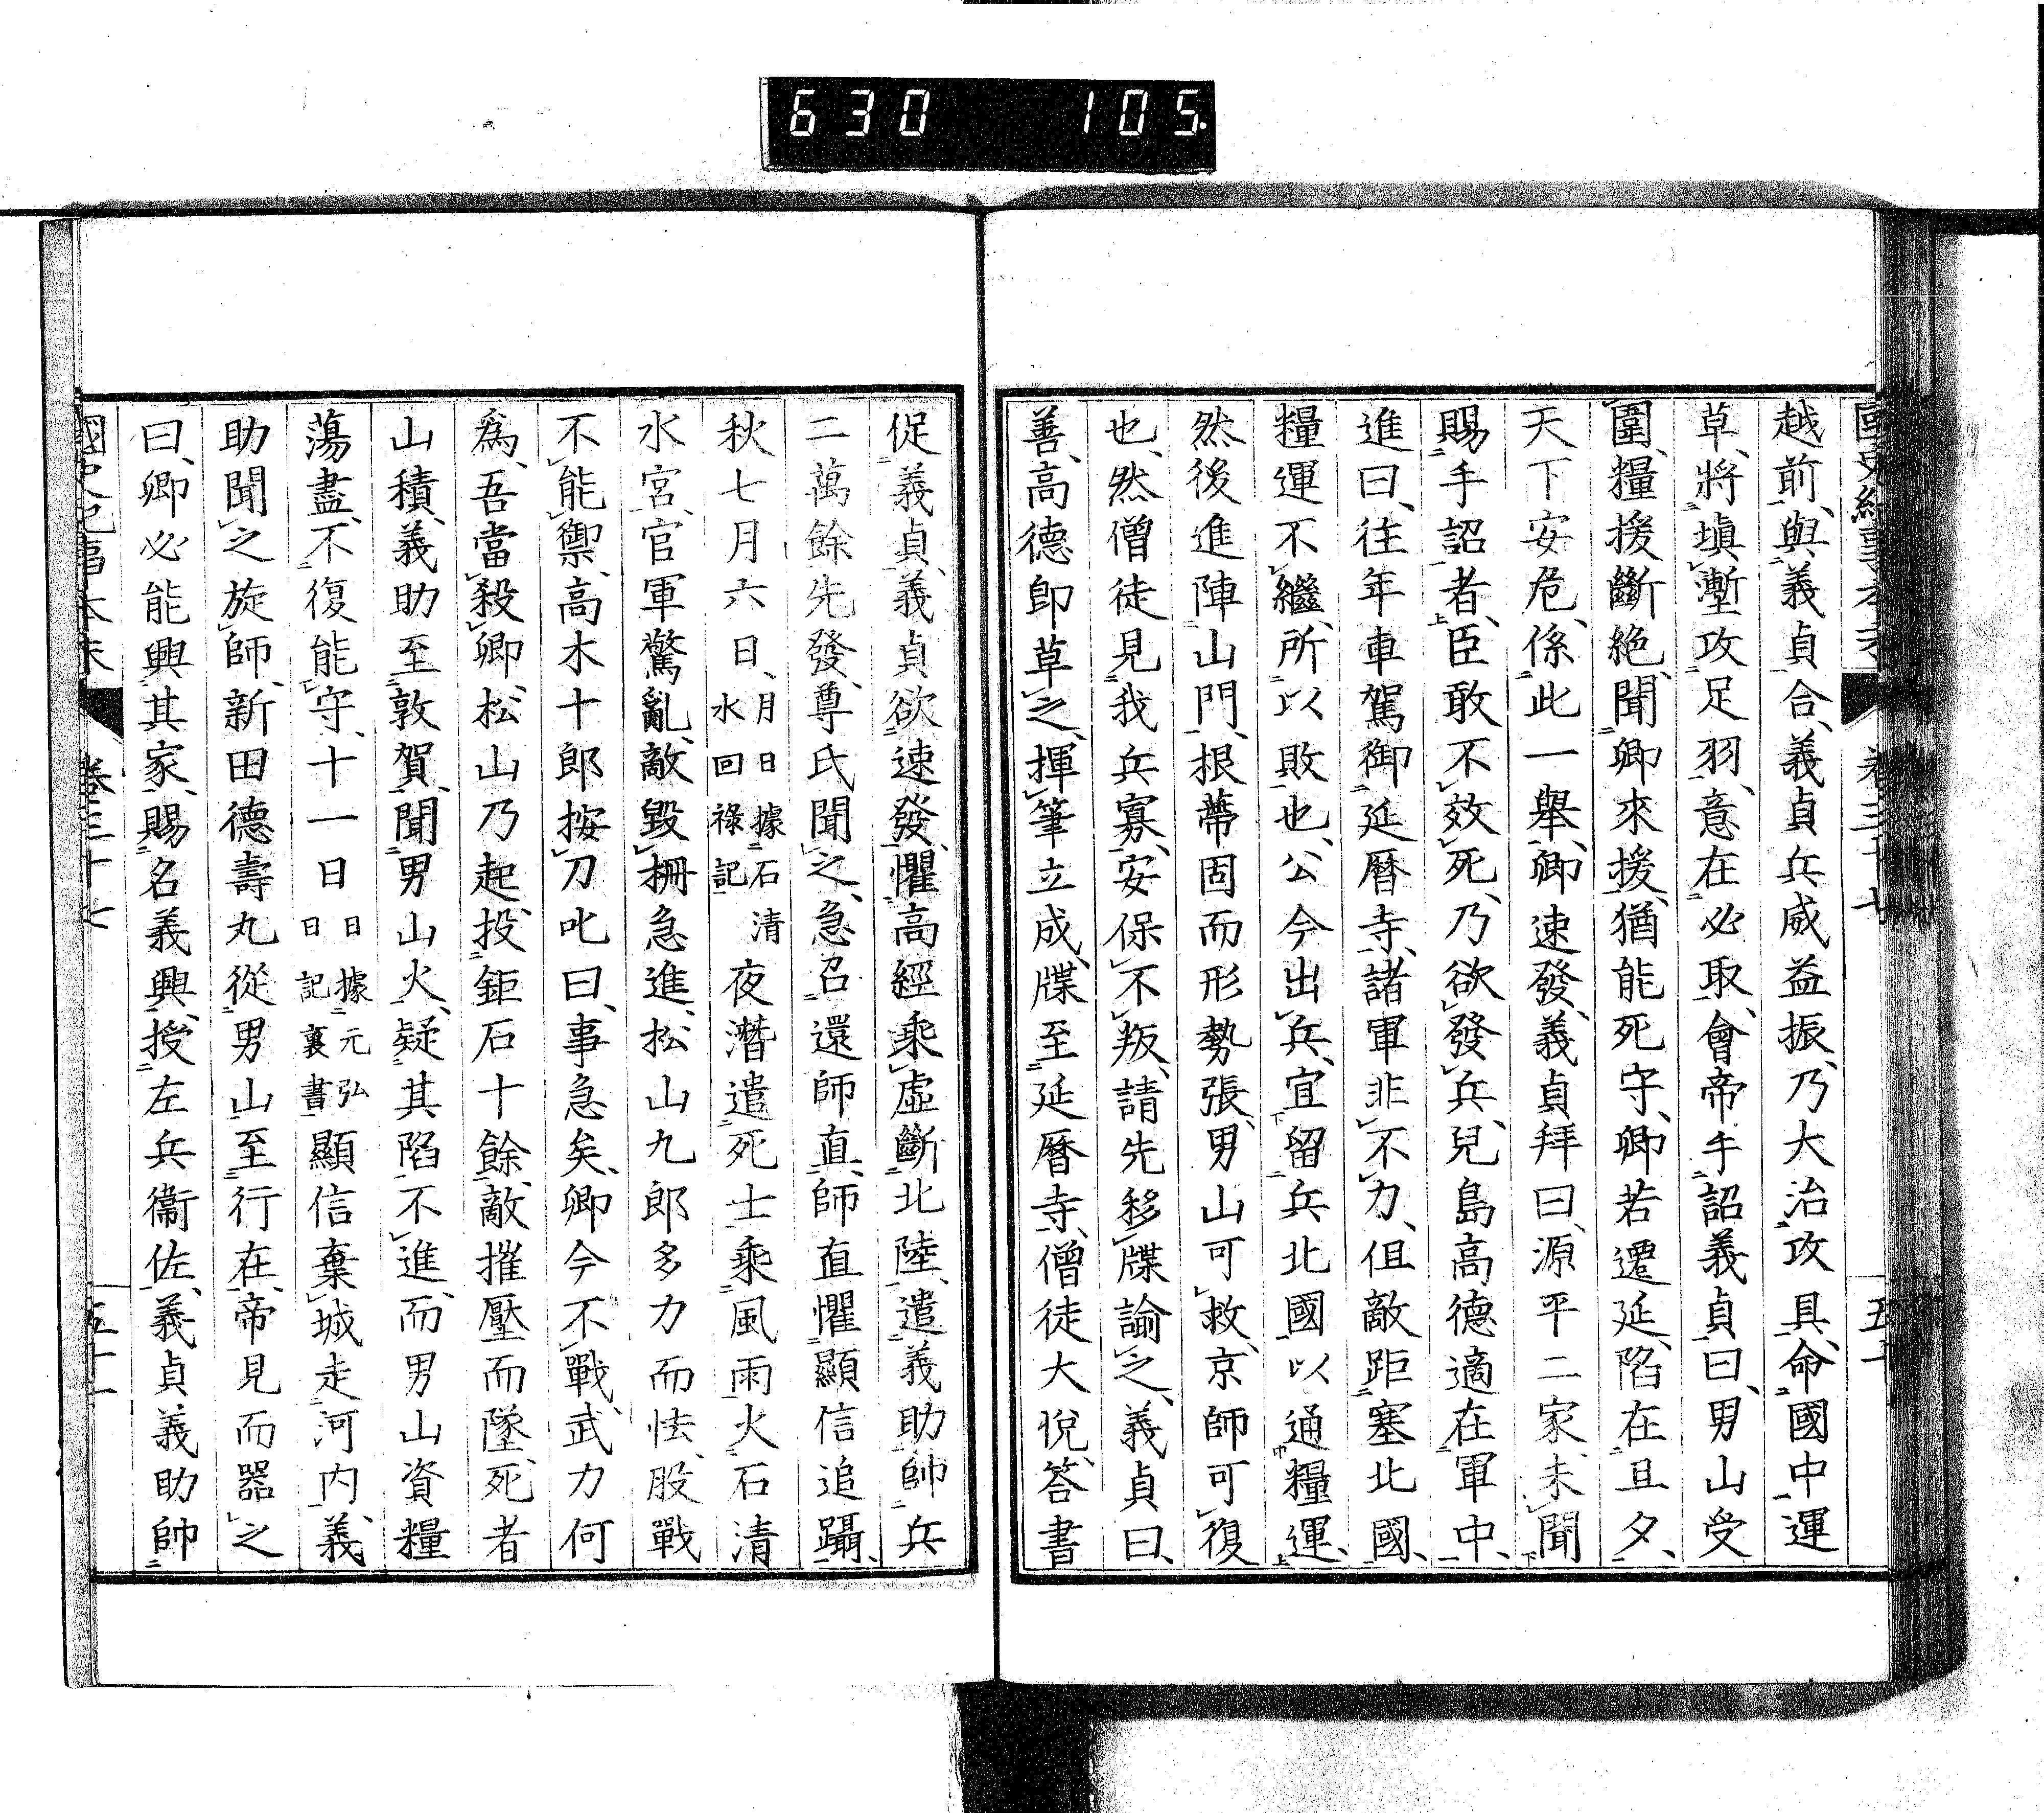 630 105
越前、與義貞合、義貞兵威益振、乃大治攻具、命國中運
草、將塡塹攻足羽、意在必取、會帝手詔義貞曰、男山受
圍、糧援斷絶、聞卿來援、猶能死守、卿若遷延、陷在旦夕、
天下安危、係此一擧、卿速發、義貞拜曰、源平二家、未聞
賜手詔者、臣敢不效死、乃欲發兵、兒島高德適在軍中、
進曰、往年車駕御延曆寺、諸軍非不力、伹敵距塞北國、
糧運不繼、所以敗也、公今出兵、宜留兵北國以通糧運、
然後進陣山門、根蔕固而形勢張、男山可救、京師可復
也、然僧徒見我兵寡、安保不叛、請先移牒諭之、義貞曰、
善、高德卽草之、揮筆立成、牒至延曆寺、僧徒大悅、答書
促義貞、義貞欲速發、懼高經乘虛斷北陸、遣義助帥兵
二萬餘先發、尊氏聞之、急召還師直、師直懼顯信追躡、
秋七月六日、月日據石清水回祿記夜潛遣死士乘風雨火石清
水宮、官軍驚亂、敵毀柵急進、松山九郎多力而怯、股戰
不能禦、高木十郎按刀叱曰、事急矣、卿今不戰、武力何
爲、吾當殺卿、松山乃起、投鉅石十餘、敵摧壓而墜死者
山積、義助至敦賀、聞男山火、疑其陷不進、而男山資糧
蕩盡、不復能守、十一日日據元弘日記裏書顯信棄城走河內、義
助聞之旋師、新田德壽丸從男山至行在、帝見而器之
曰、卿必能興其家、賜名義興、授左兵衞佐、義貞義助帥
國史紀事本末 卷三十七